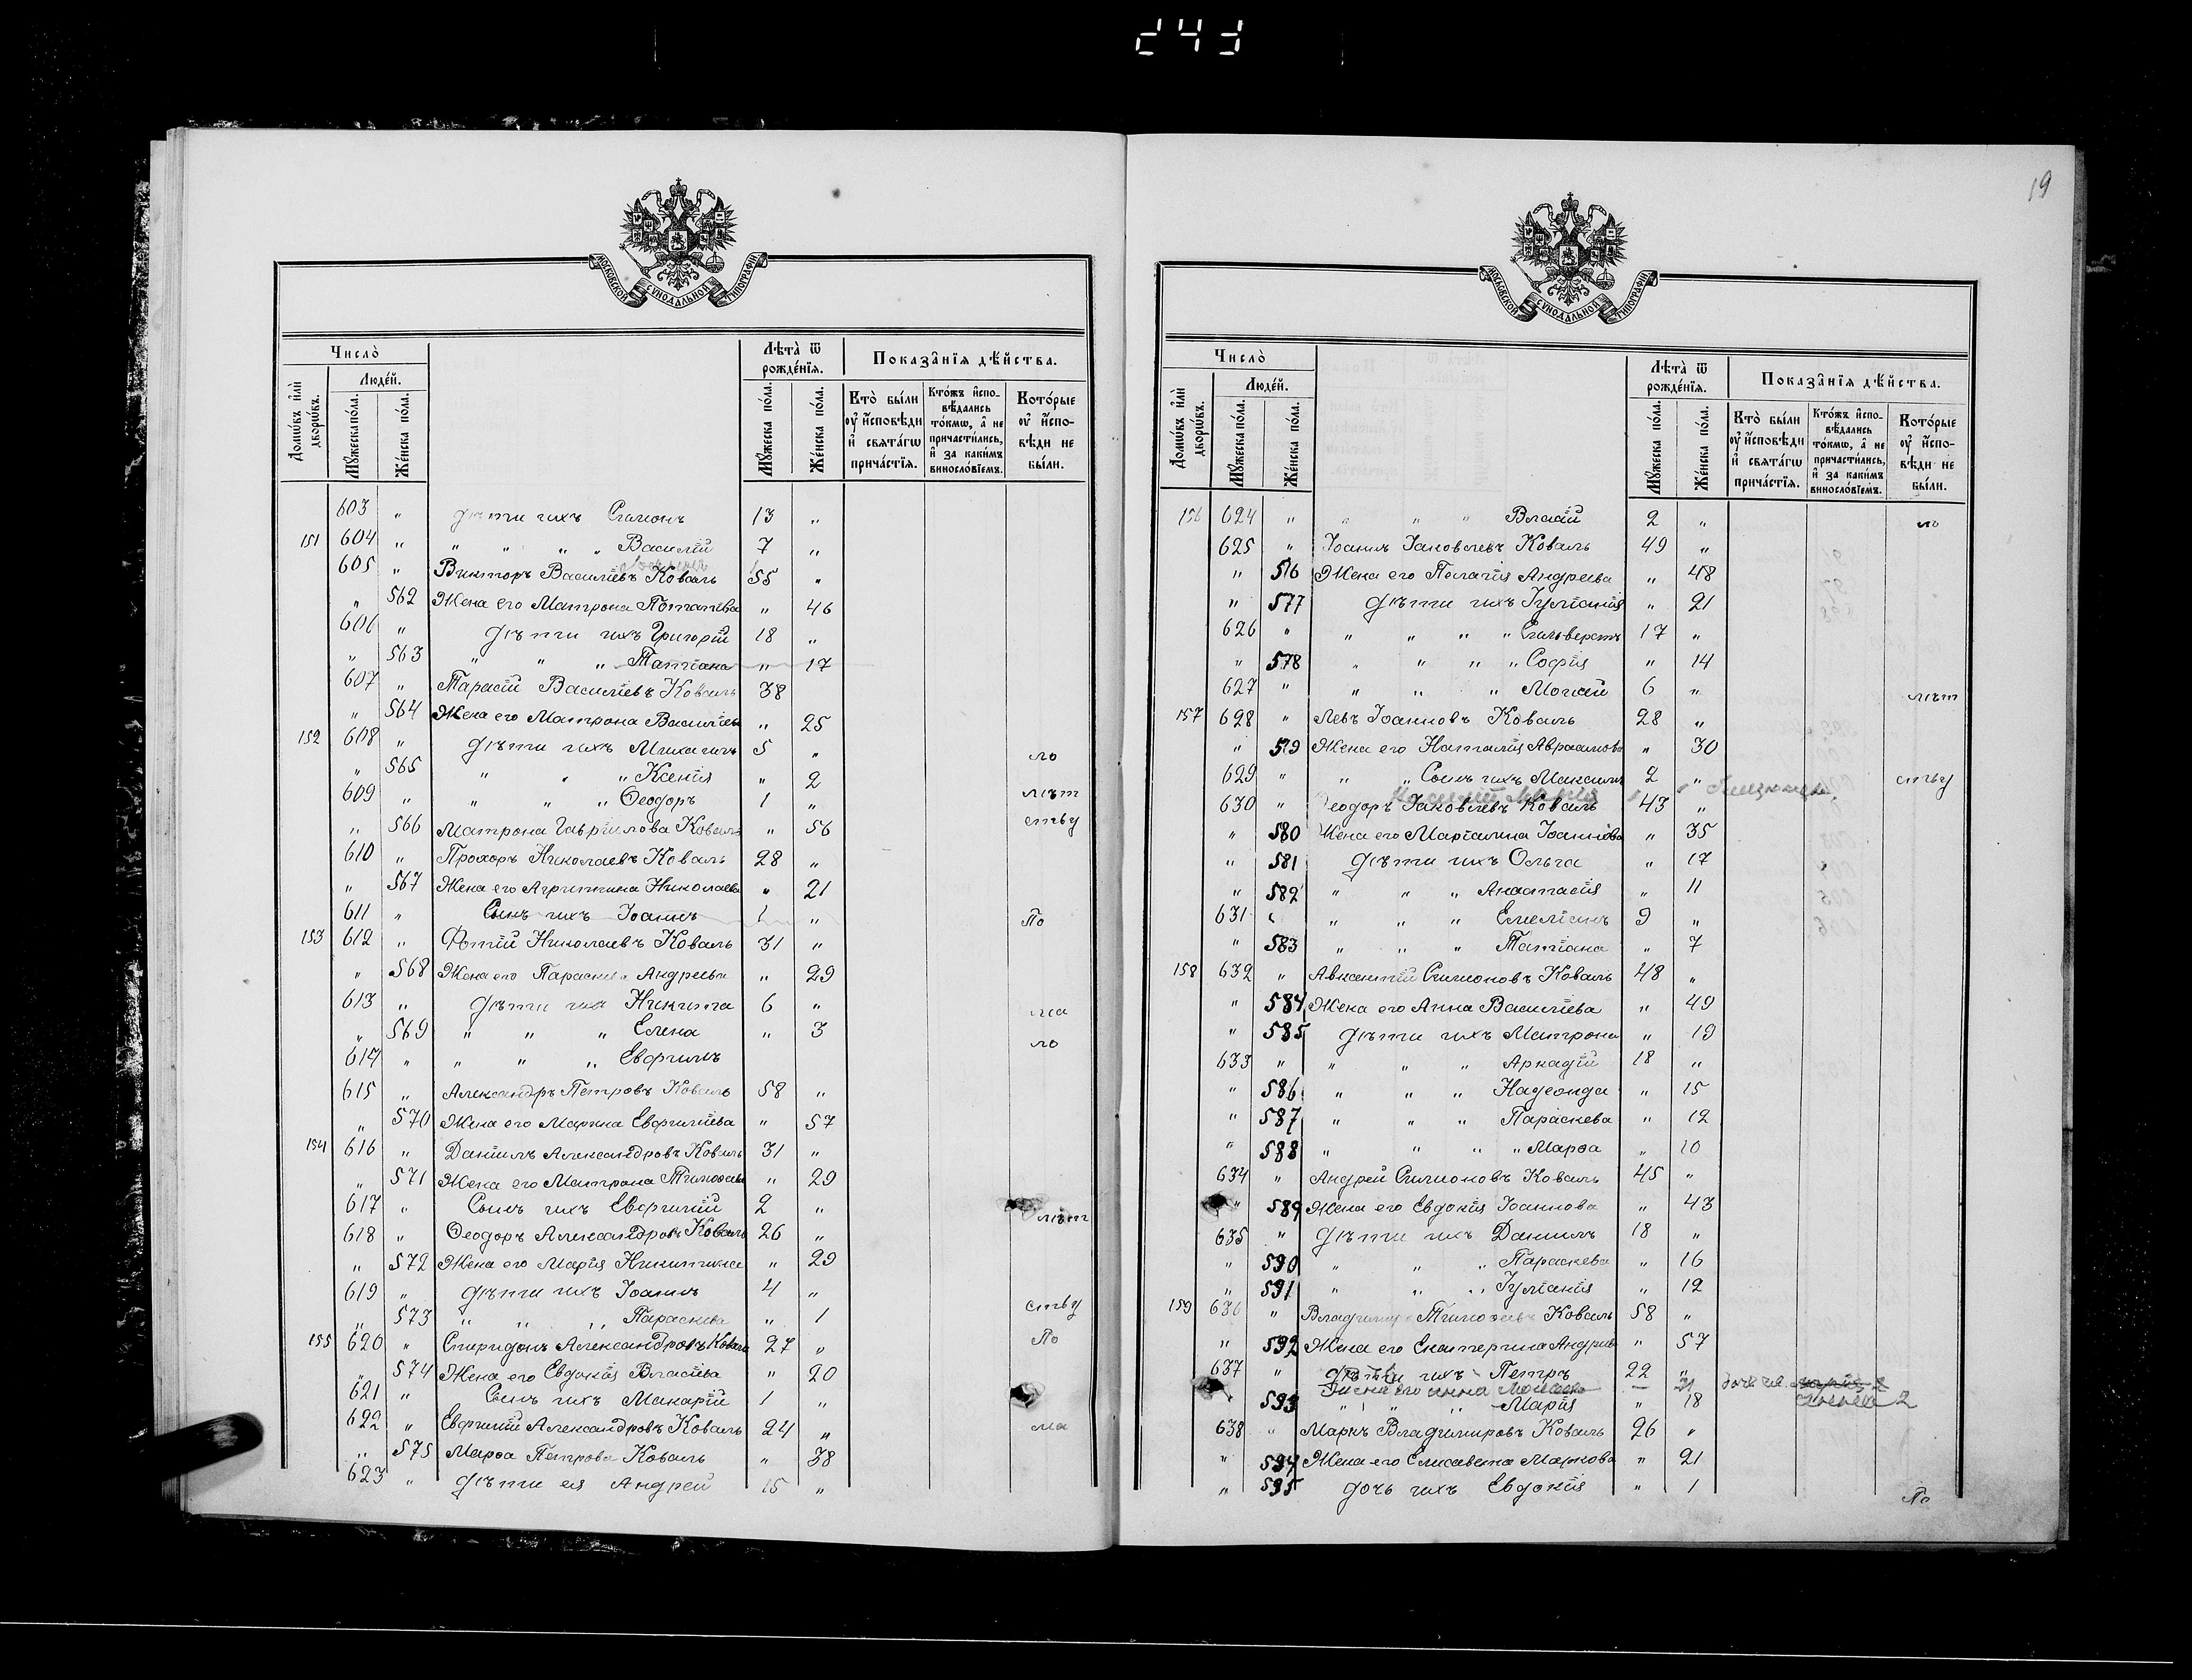 243
19
МОСКОВСКОЙ СУНОДАЛЬНОЙ ТИПОГРАФІИ
Число̀
Люде́й.
Домѡ́въ и҆лѝ дворѡ́въ.
Мꙋ́жеска по́ла.
Же́нска по́ла.
Лѣ́та ѿ рожде́нїѧ.
Мꙋ́жеска по́ла.
Же́нска по́ла.
Показа̑нїѧ дѣ́йства.
Кто̀ бы́ли оу҆ и҆сповѣ́ди и҆ свѧта́гѡ прича́стїѧ.
Кто́жъ и҆спо- вѣ́дались то́кмѡ, а҆ не причасти́лись, и҆ за каки́мъ винослов́їемъ.
Кото́рые оу҆ и҆спо- вѣ́ди не бы́ли.
603 " дѣти ихъ Симонъ 13 "
151 604 " " " " " Василій 7 "
605 " Викторъ Василіевъ Коваль 55 "
" 562 Жена его Матрона Потапіева " 46
606 " дѣти ихъ Григорій 18 "
" 563 " " " Татіана " 17
607 " Тарасій Василіевъ Коваль 38
" 564 Жена его Матрона Василіева " 25
152 608 " дѣти ихъ Михаилъ 5 " ло
" 565 " " " Ксенія " 2
609 " " " " Ѳеодоръ 1 " лѣт
" 566 Матрона Гавриілова Коваль " 56 ству
610 " Прохоръ Николаевъ Коваль 28 "
" 567 Жена его Агриппина Николаева " 21
611 " Сынъ ихъ Іоаннъ 1 " По
153 612 " Фотій Николаевъ Коваль 31 "
" 568 Жена его Параскева Андреева " 29
613 " дѣти ихъ Никита 6 " ма
" 569 " " " Елена " 3 ло
614 " " " " Евфимъ
615 " Александръ Петровъ Коваль 58 "
" 570 Жена его Марина Евфиміева " 57
154 616 " Даніилъ Александровъ Коваль 31 "
" 571 Жена его Матрона Тимоѳеева " 29
617 " Сынъ ихъ Евфимій 2 " лѣт
618 " Ѳеодоръ Александровъ Коваль 26 "
" 572 Жена его Марія Никитина " 29
619 " дѣти ихъ Іоаннъ 4 "
" 573 " " " Параскева " 1 ству
155 620 " Спиридонъ Александровъ Коваль 27 " По
" 574 Жена его Евдокія Власіева " 20
621 " Сынъ ихъ Макарій 1 "
622 " Евфимій Александровъ Коваль 24 " ма
" 575 Марѳа Петрова Коваль " 38
623 " дѣти ея Андрей 15 "
МОСКОВСКОЙ СУНОДАЛЬНОЙ ТИПОГРАФІИ
Число̀
Люде́й.
Домѡ́въ и҆лѝ дворѡ́въ.
Мꙋ́жеска по́ла.
Же́нска по́ла.
Лѣ́та ѿ рожде́нїѧ.
Мꙋ́жеска по́ла.
Же́нска по́ла.
Показа̑нїѧ дѣ́йства.
Кто̀ бы́ли оу҆ и҆сповѣ́ди и҆ свѧта́гѡ прича́стїѧ.
Кто́жъ и҆спо- вѣ́дались то́кмѡ, а҆ не причасти́лись, и҆ за каки́мъ винослов́їемъ.
Кото́рые оу҆ и҆спо- вѣ́ди не бы́ли.
156 624 " " " " Власій 2 " ло
625 " Іоаннъ Іаковлевъ Коваль 49 "
" 576 Жена его Пелагія Андреева " 48
" 577 дѣти ихъ Іуліанія " 21
626 " " " " " Сильверстъ 17 "
" 578 " " " " Софія " 14
627 " " " " Мочсей 6 " лѣт
157 628 " Левъ Іоанновъ Коваль 28 "
" 579 Жена его Наталія Авраамова " 30
629 " " " Сынъ ихъ Максимъ 2 " ству
630 " Ѳеодоръ Іаковлевъ Коваль 43 "
" 580 Жена его Маріамна Іоаннова " 35
" 581 дѣти ихъ Ольга " 17
" 582 " " " Анастасія " 11
631 " " " " Емеліанъ 9 "
" 583 " " " Татіана " 7
158 632 " Авксентій Симоновъ Коваль 48 "
" 584 Жена его Анна Василіева " 49
" 585 дѣти ихъ Матрона " 19
633 " " " " Аркадій 18 "
" 586 " " " Надежда " 15
" 587 " " " Параскева " 12
" 588 " " " " Марѳа " 10
634 " Андрей Симоновъ Коваль 45 "
" 589 Жена его Евдокія Іоаннова " 43
635 " дѣти ихъ Даніилъ 18 "
" 590 " " " Параскева " 16
" 591 " " " Іуліанія " 12
159 636 " Владиміръ Тимоѳеевъ Коваль 58 "
" 592 Жена его Екатерина Андреева " 57
637 " дѣти ихъ Петръ 22 "
Жена его Анна — 21 дочь их Марія 2
" 593 " " " Марія " 18 2
638 " Маркъ Владиміровъ Коваль 26 "
" 594 Жена его Елисавета Маркова " 21
" 595 дочь ихъ Евдокія " 1 По